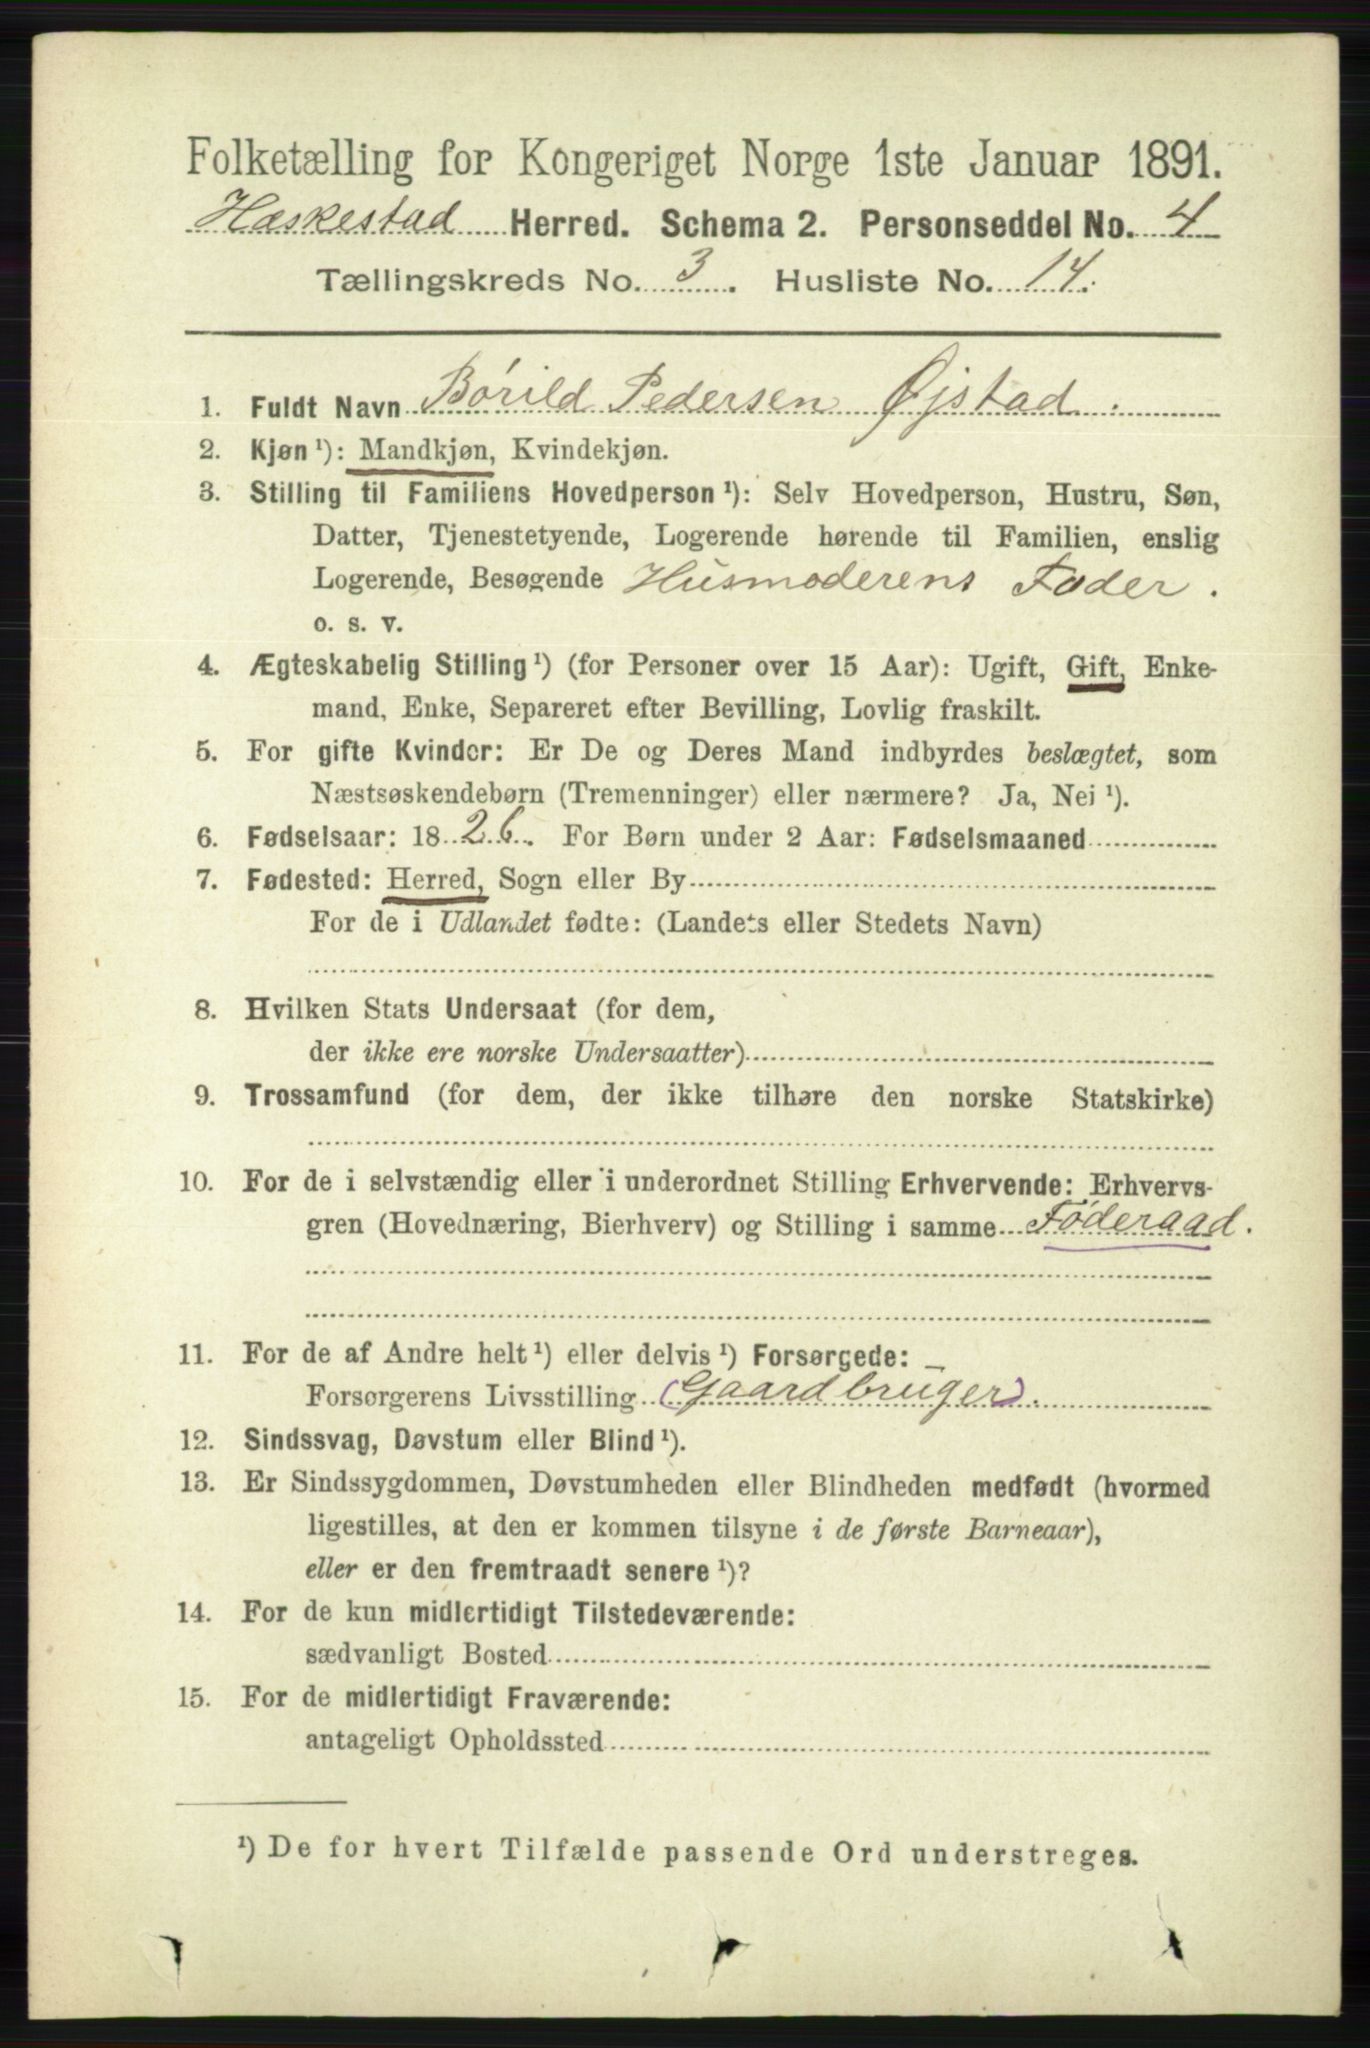 Folketælling for Kongeriget Norge 1ste Januar 1891.
Heskestad Herred. Schema 2. Personseddel No. 4
Tællingskreds No. 3. Husliste No. 14.
1. Fuldt Navn Børild Pedersen Øjstad.
2. Kjøn ¹): Mandkjøn, Kvindekjøn.
3. Stilling til Familiens Hovedperson ¹): Selv Hovedperson, Hustru, Søn,
Datter, Tjenestetyende, Logerende hørende til Familien, enslig
Logerende, Besøgende Husmoderens Fader.
o. s. v.
4. Ægteskabelig Stilling ¹) (for Personer over 15 Aar): Ugift, Gift, Enke-
mand, Enke, Separeret efter Bevilling, Lovlig fraskilt.
5. For gifte Kvinder: Er De og Deres Mand indbyrdes beslægtet, som
Næstsøskendebørn (Tremenninger) eller nærmere? Ja, Nei ¹).
6. Fødselsaar: 1826. For Børn under 2 Aar: Fødselsmaaned
7. Fødested: Herred, Sogn eller By
For de i Udlandet fødte: (Landets eller Stedets Navn)
8. Hvilken Stats Undersaat (for dem,
der ikke ere norske Undersaatter)
9. Trossamfund (for dem, der ikke tilhøre den norske Statskirke)
10. For de i selvstændig eller i underordnet Stilling Erhvervende: Erhvervs-
gren (Hovednæring, Bierhverv) og Stilling i samme Føderaad.
11. For de af Andre helt ¹) eller delvis ¹) Forsørgede:
Forsørgerens Livsstilling (Gaardbruger).
12. Sindssvag, Døvstum eller Blind ¹).
13. Er Sindssygdommen, Døvstumheden eller Blindheden medfødt (hvormed
ligestilles, at den er kommen tilsyne i de første Barneaar),
eller er den fremtraadt senere ¹)?
14. For de kun midlertidigt Tilstedeværende:
sædvanligt Bosted
15. For de midlertidigt Fraværende:
antageligt Opholdssted
¹) De for hvert Tilfælde passende Ord understreges.